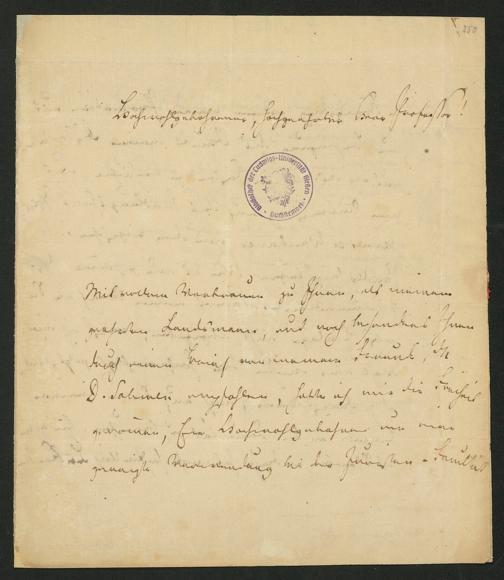 250
Wohlgebohrner, Hochgeehrter Herr Professor!
Bibliothek der Ludwigs-Universität Gießen
Mit vollem Vertrauen zu Ihnen, als meinem
geehrten Landsmann, und noch besonders Ihnen
durch einen von meinem Freund, H
D. empfohlen, hatte ich mir die Freiheit
genommen, Eure Wohlgebohren um eine
geneigte Verwendung bei der Juristen-Facultät